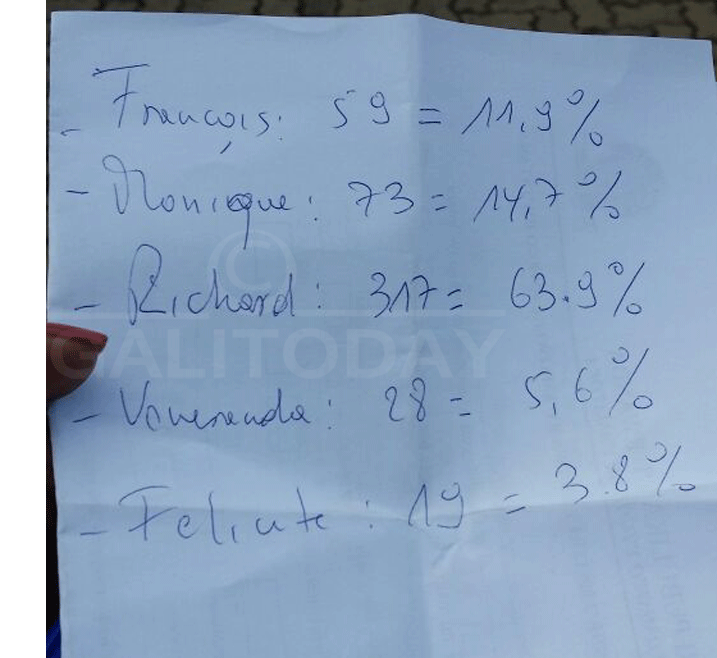 - François: 59 = 11,9%
- Monique: 73 = 14,7%
©
- Richard: 317 = 63.9%
GALITODAY
- Venerenda: 28 = 5,6%
- Felicite: 19 = 3.8%